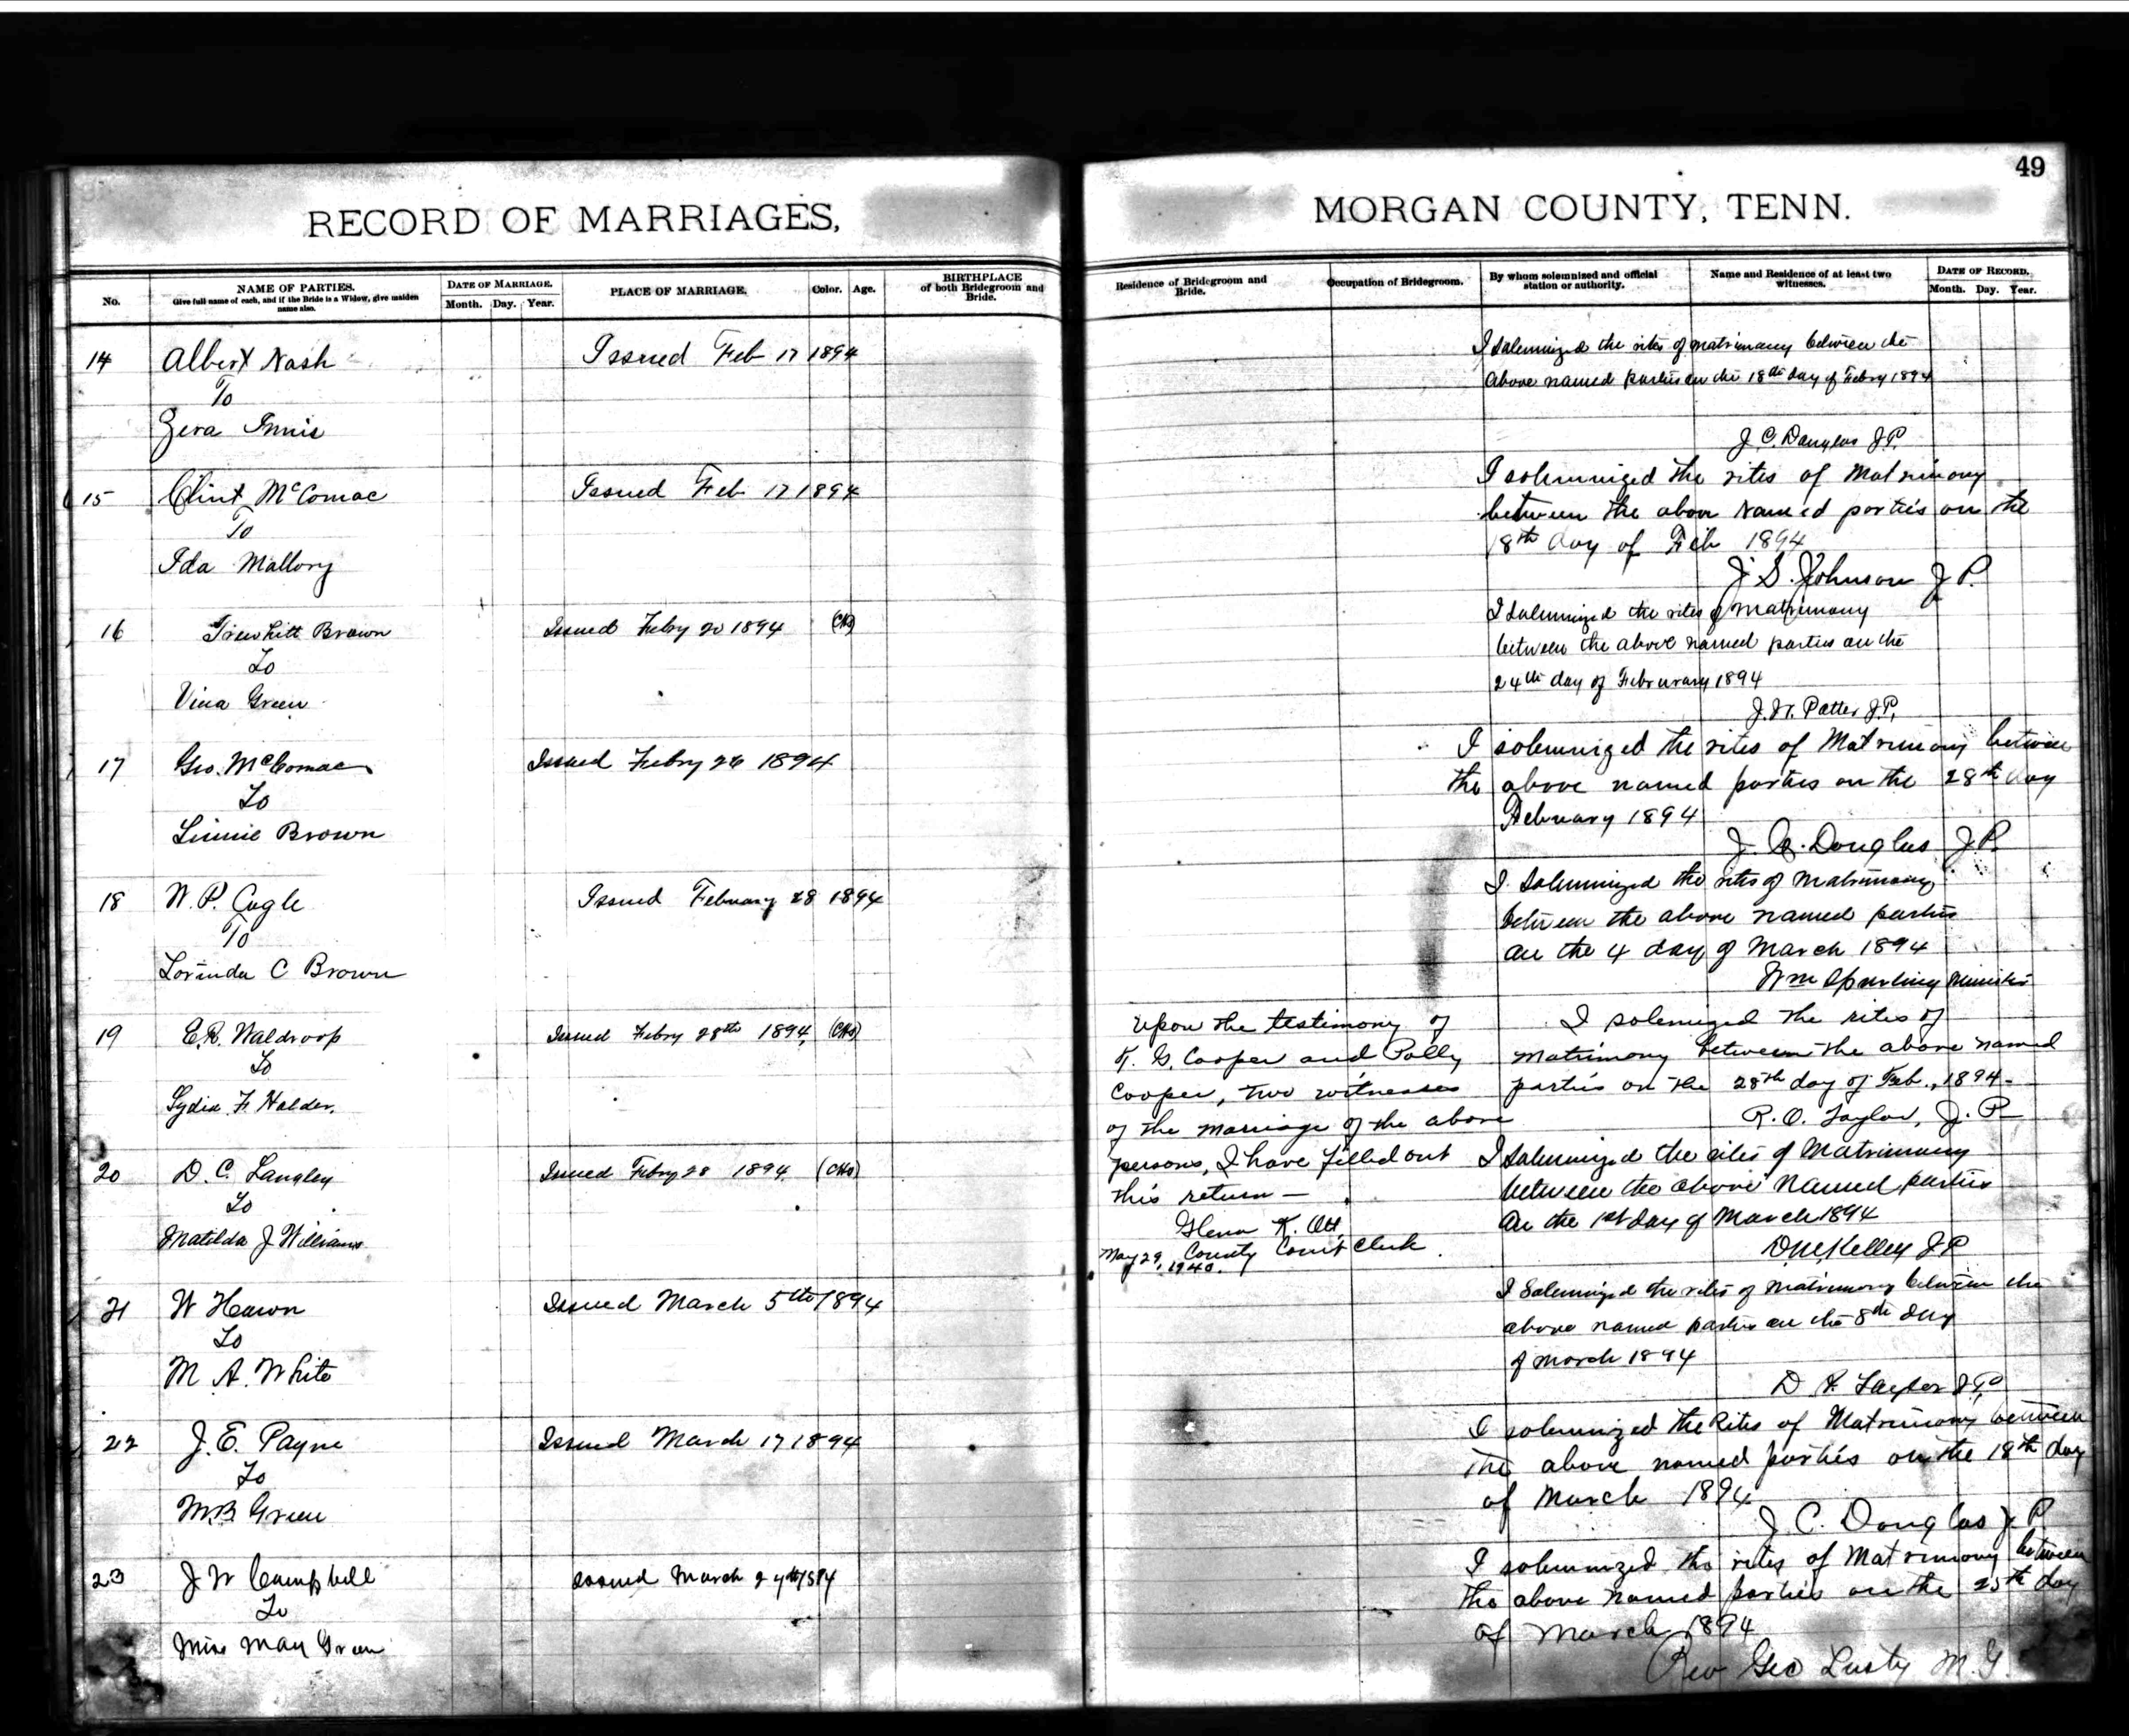 49
RECORD OF MARRIAGES,
MORGAN COUNTY, TENN.
No.
NAME OF PARTIES.
Give full name of each, and if the Bride is a Widow, give maiden
name also.
DATE OF MARRIAGE.
Month. Day. Year.
PLACE OF MARRIAGE.
Color.
Age.
BIRTHPLACE
of both Bridegroom and
Bride.
Residence of Bridegroom and
Bride.
Occupation of Bridegroom.
By whom solemnized and official
station or authority.
Name and Residence of at least two
witnesses.
DATE OF RECORD.
Month. Day. Year.
14 Albert Nash
To
Zera Innis
Issued Feb 17 1894
I solemnized the rites of matrimony between the
above named parties on the 18th day of Febry 1894
J. C. Douglas J.P.
15 Clint McComac
To
Ida Mallory
Issued Feb 17 1894
I solemnized the rites of Matrimony
between the above named parties on the
18th day of Feb 1894
J. S. Johnson J P.
16 Trewhitt Brown
To
Vina Green
Issued Febry 20 1894
I solemnized the rites of matrimony
between the above named parties on the
24th day of Februrary 1894
J. W. Potter J.P.
17 Geo. McComac
To
Linnie Brown
Issued Febry 26 1894
I solemnized the rites of Matrimony between
the above named parties on the 28th day
February 1894
J. C. Douglas J.P.
18 W. P. Cagle
To
Lorinda C Brown
Issued February 28 1894
I solemnized the rites of Matrimony
between the above named parties
on the 4 day of March 1894
Wm Spurling Minister
19 E.R. Waldroop
To
Lydia F. Holder.
Issued Febry 28th 1894
Upon the testimony of
T. G. Cooper and Polly
Cooper, two witnesses
of the marriage of the above
persons, I have filled out
this return —
Glenn K. Ott
County Court Clerk
May 29, 1940.
I solemnized the rites of
matrimony between the above named
parties on the 28th day of Feb., 1894.
R. O. Taylor, J. P.
20 D. C. Langley
To
Matilda J Williams
Issued Febry 28 1894
I solemnized the rites of Matrimony
between the above named parties
on the 1st day of March 1894
Kelley J P
21 W Hawn
To
M. A. White
Issued March 5th 1894
I Solemnized the rites of Matrimony between the
above named parties on the 8th day
of March 1894
Taylor J.P.
22 J. E. Payne
To
M.B. Green
Issued March 17 1894
I solemnized the Rites of Matrimony between
the above named parties on the 18th day
of March 1894
J. C. Douglas J. P.
23 J W Campbell
To
Miss May Green
Issued March
I solemnized the rites of Matrimony between
the above named parties on the 25th day
of March 1894
Rev Geo Lusty M. G.